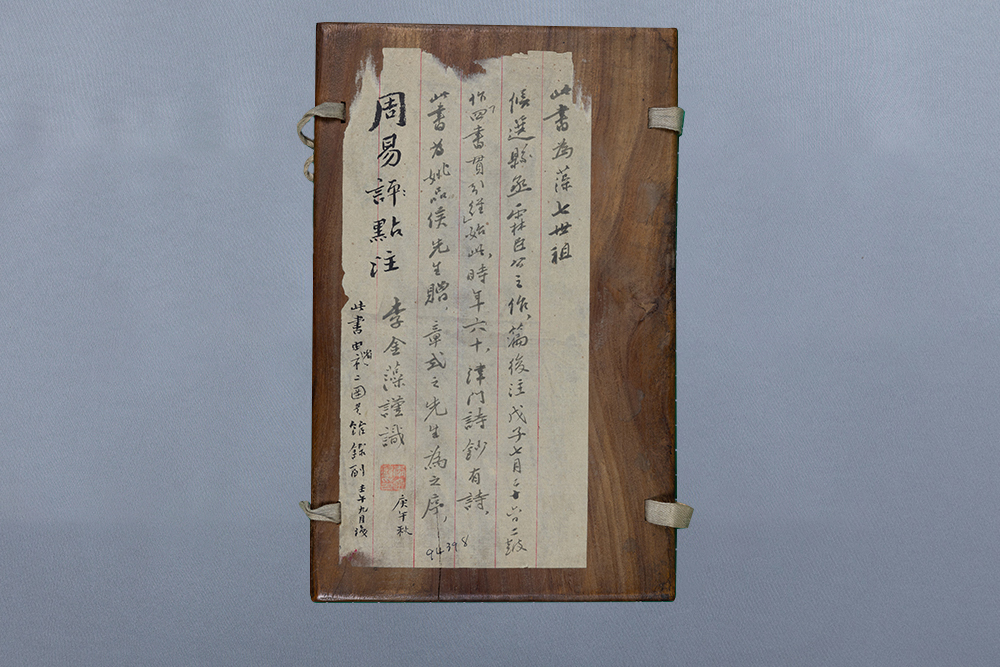 此書為藻七世祖
候選縣丞霖臣公之作，篇後注戊子七月二十六日二鼓
作，四書貫引經始此，時年六十，津門詩鈔有詩，
此書為姚品侯先生贈，章式之先生為之序，
周易評點注
李金藻謹識
庚午秋
此書由省社二圖書館錄副 壬午九月識
94398